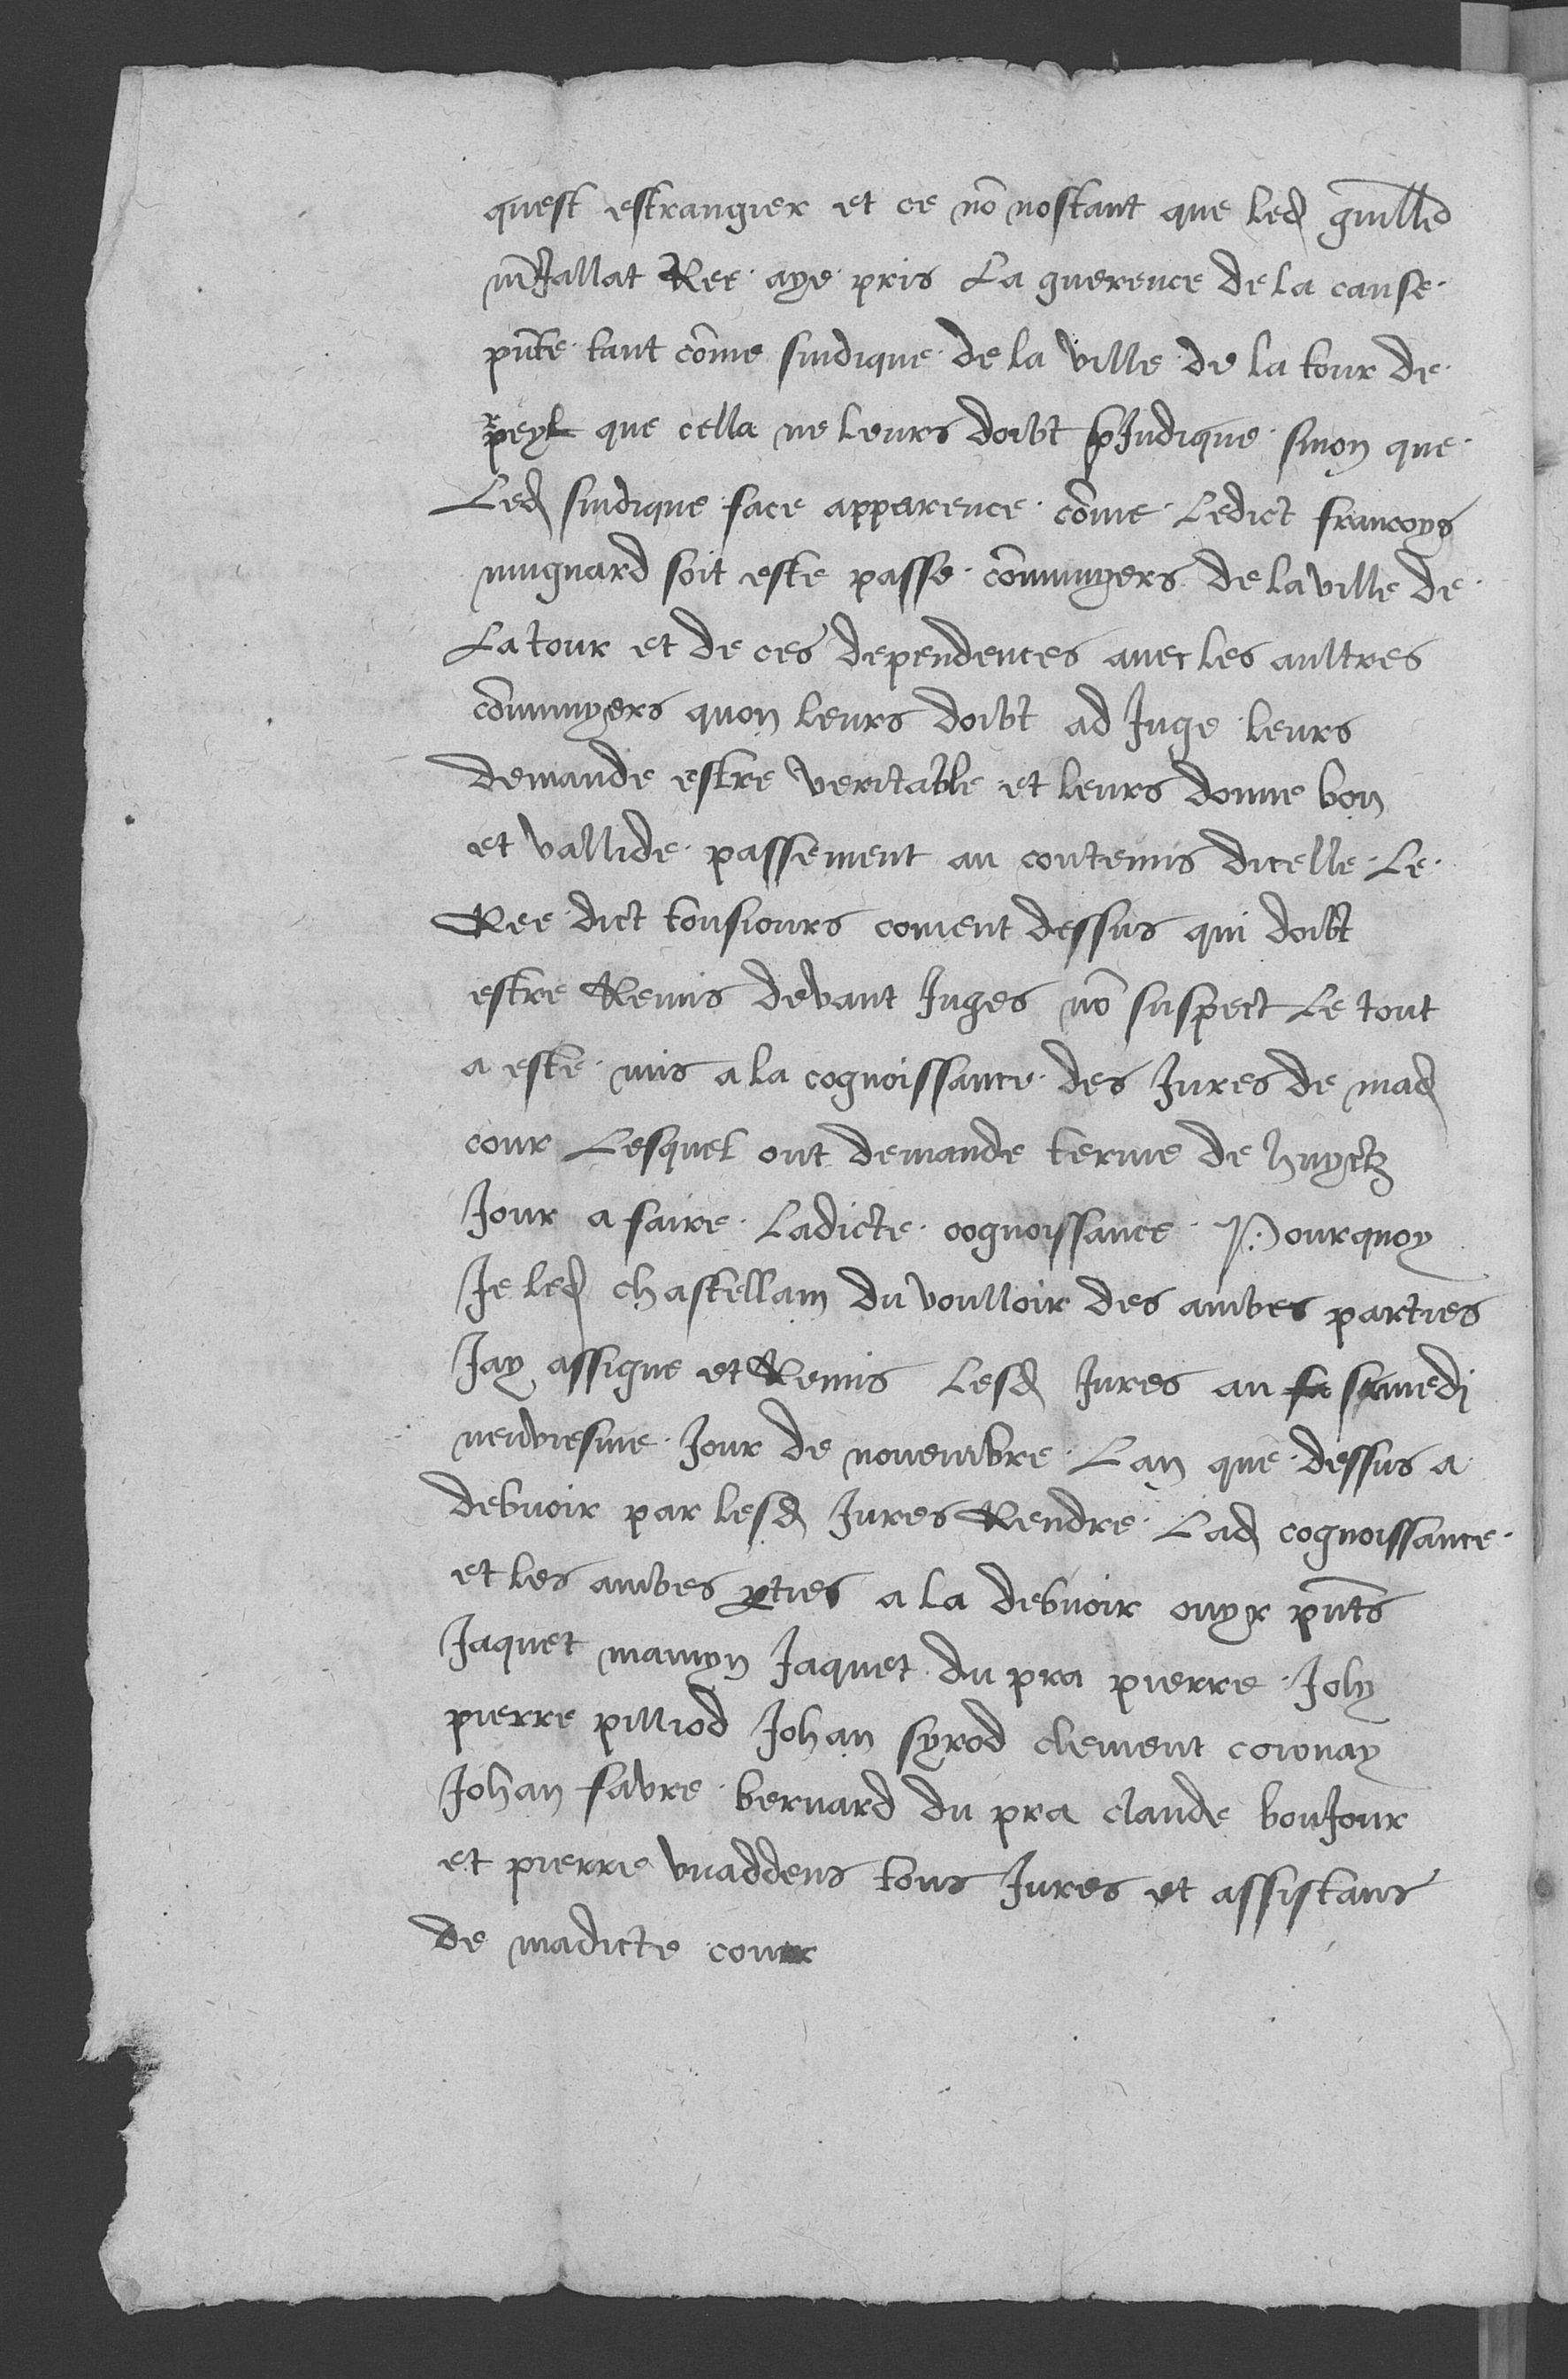 quest estrangier et ce nō nostant que led guilld
Ree aye pris La guerence de la cause
pn̄te tant cōme sindique de la ville de la tour de
peyl que cella ne leurs doibt p̱Iudique sinon que
Led sindique face apparence cōme Ledict francoys
mugnard soit este passe cōmunyers de la ville de
La tour et de ces dependences avec les aultres
cōmunyers quon leurs doibt ad Iuge leurs
demande estre veritable et leurs donne bon
et vallide passement au contenus dicelle Le
Ree dict tousiours coment dessus qui doibt
estre Remis devant Iuges nō suspect Le tout
a este mis a la cognoissance des Iures de mad
cour Lesquel ont demande terme de huyctz
Iour a faire Ladicte cognoissance Pourquoy
Ie led chastellain du voulloir des ambes parties
Iay assigne et Remis Lesd Iures au sa samedi
neuviesme Iour de novembre Lan que dessus a
debvoir par lesd Iures Rendre Lad cognoissance
et les ambes p̱ties a la debvoir ouyr pn̄ts
Iaquet mamyn Iaquet du pra pierre Joly
pierre pilliod Johan syrod clement cornay
Johan favre bernard du pra claude bonJour
et pierre vuaddens tous Iures et assistans
de madicte cour